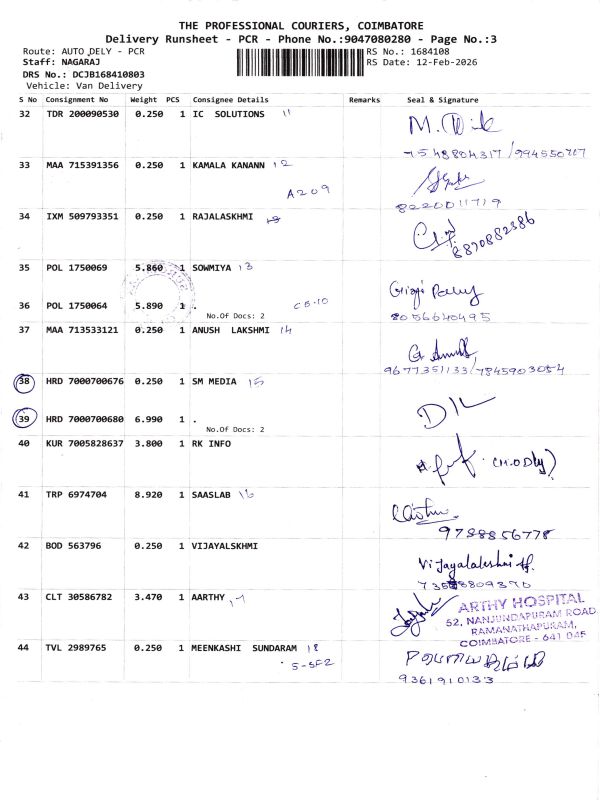 THE PROFESSIONAL COURIERS, COIMBATORE
Delivery Runsheet - PCR - Phone No.:9047080280 - Page No.:3
Route: AUTO DELY - PCR RS No.: 1684108
Staff: NAGARAJ RS Date: 12-Feb-2026
DRS No.: DCJB168410803
Vehicle: Van Delivery
S No Consignment No Weight PCS Consignee Details Remarks Seal & Signature
32 TDR 200090530 0.250 1 IC SOLUTIONS 11
33 MAA 715391356 0.250 1 KAMALA KANANN 12
A209 8220011719
34 IXM 509793351 0.250 1 RAJALASKHMI
8870882386
35 POL 1750069 5.860 1 SOWMIYA 13
36 POL 1750064 5.890 1 .
No.Of Docs: 2 8056640495
37 MAA 713533121 0.250 1 ANUSH LAKSHMI 14
9677351133/7845903054
38 HRD 7000700676 0.250 1 SM MEDIA 15
39 HRD 7000700680 6.990 1 .
No.Of Docs: 2
40 KUR 7005828637 3.800 1 RK INFO
41 TRP 6974704 8.920 1 SAASLAB 16
9788856778
42 BOD 563796 0.250 1 VIJAYALSKHMI
43 CLT 30586782 3.470 1 AARTHY 17
ARTHY HOSPITAL
52, NANJUNDAPURAM ROAD
RAMANATHAPURAM,
COIMBATORE - 641 045
44 TVL 2989765 0.250 1 MEENKASHI SUNDARAM 18
9361910133